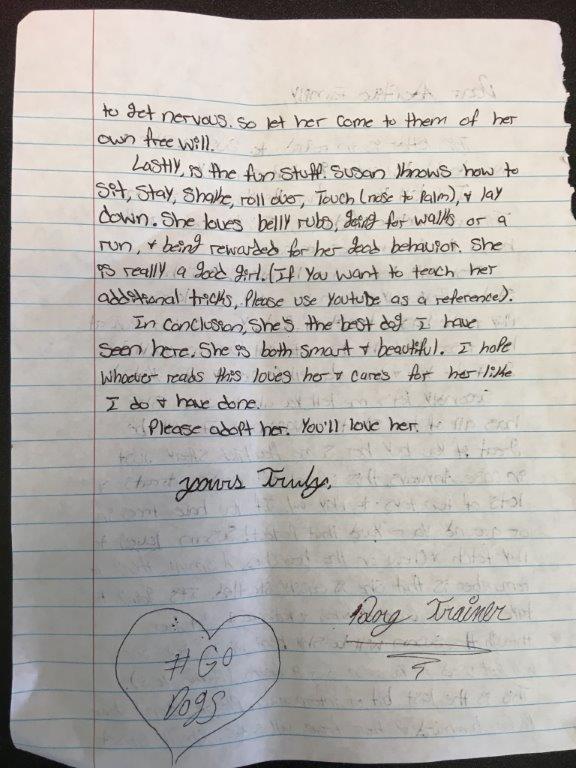 to get nervous. so let her come to them of her
own free will.
Lastly, is the fun stuff. Susan knows how to
sit, stay, shake, roll over, Touch (nose to palm), & lay
down. She loves belly rubs, going for walks or a
run, & being rewarded for her good behavior. She
is really a good girl. (If you want to teach her
additional tricks, Please use Youtube as a reference).
In conclusion, she's the best dog I have
seen here. She is both smart & beautiful. I hope
whoever reads this loves her & cares for her like
I do & have done.
Please adopt her. You'll love her.
yours Truly,
Dog Trainer
# Go
Dogs